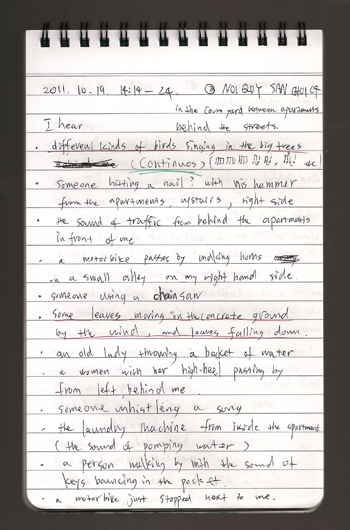 2011. 10. 19. 14:14 - 24. @ NOI QUY SAN CHOI C4
in the Court yard between apartments
behind the streets.
I hear
• different kinds of birds singing in the big trees
(continuos) etc
• someone hitting a nail? with his hammer
from the apartments, upstairs, right side
• the sound of traffic from behind the apartments
in front of me
• a motorbike passes by making horns
in a small alley on my right hand side.
• someone using a chainsaw
• Some leaves moving in the concrete ground
by the wind, and leaves falling down.
• an old lady throwing a basket of water
• a women with her high-heel passing by
from left, behind me.
• someone whistleng a song
• the laundry machine from inside the apartment
(the sound of pomping water)
• a person walking by with the sound of
keys bouncing in the pocket.
• a motorbike just stopped next to me.